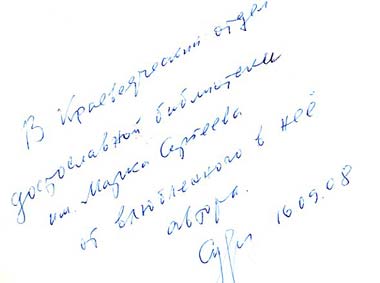 В Краеведческий отдел
достославной библиотеки
им. Марка Сергеева
от влюбленного в неё
автора.
16 09.08